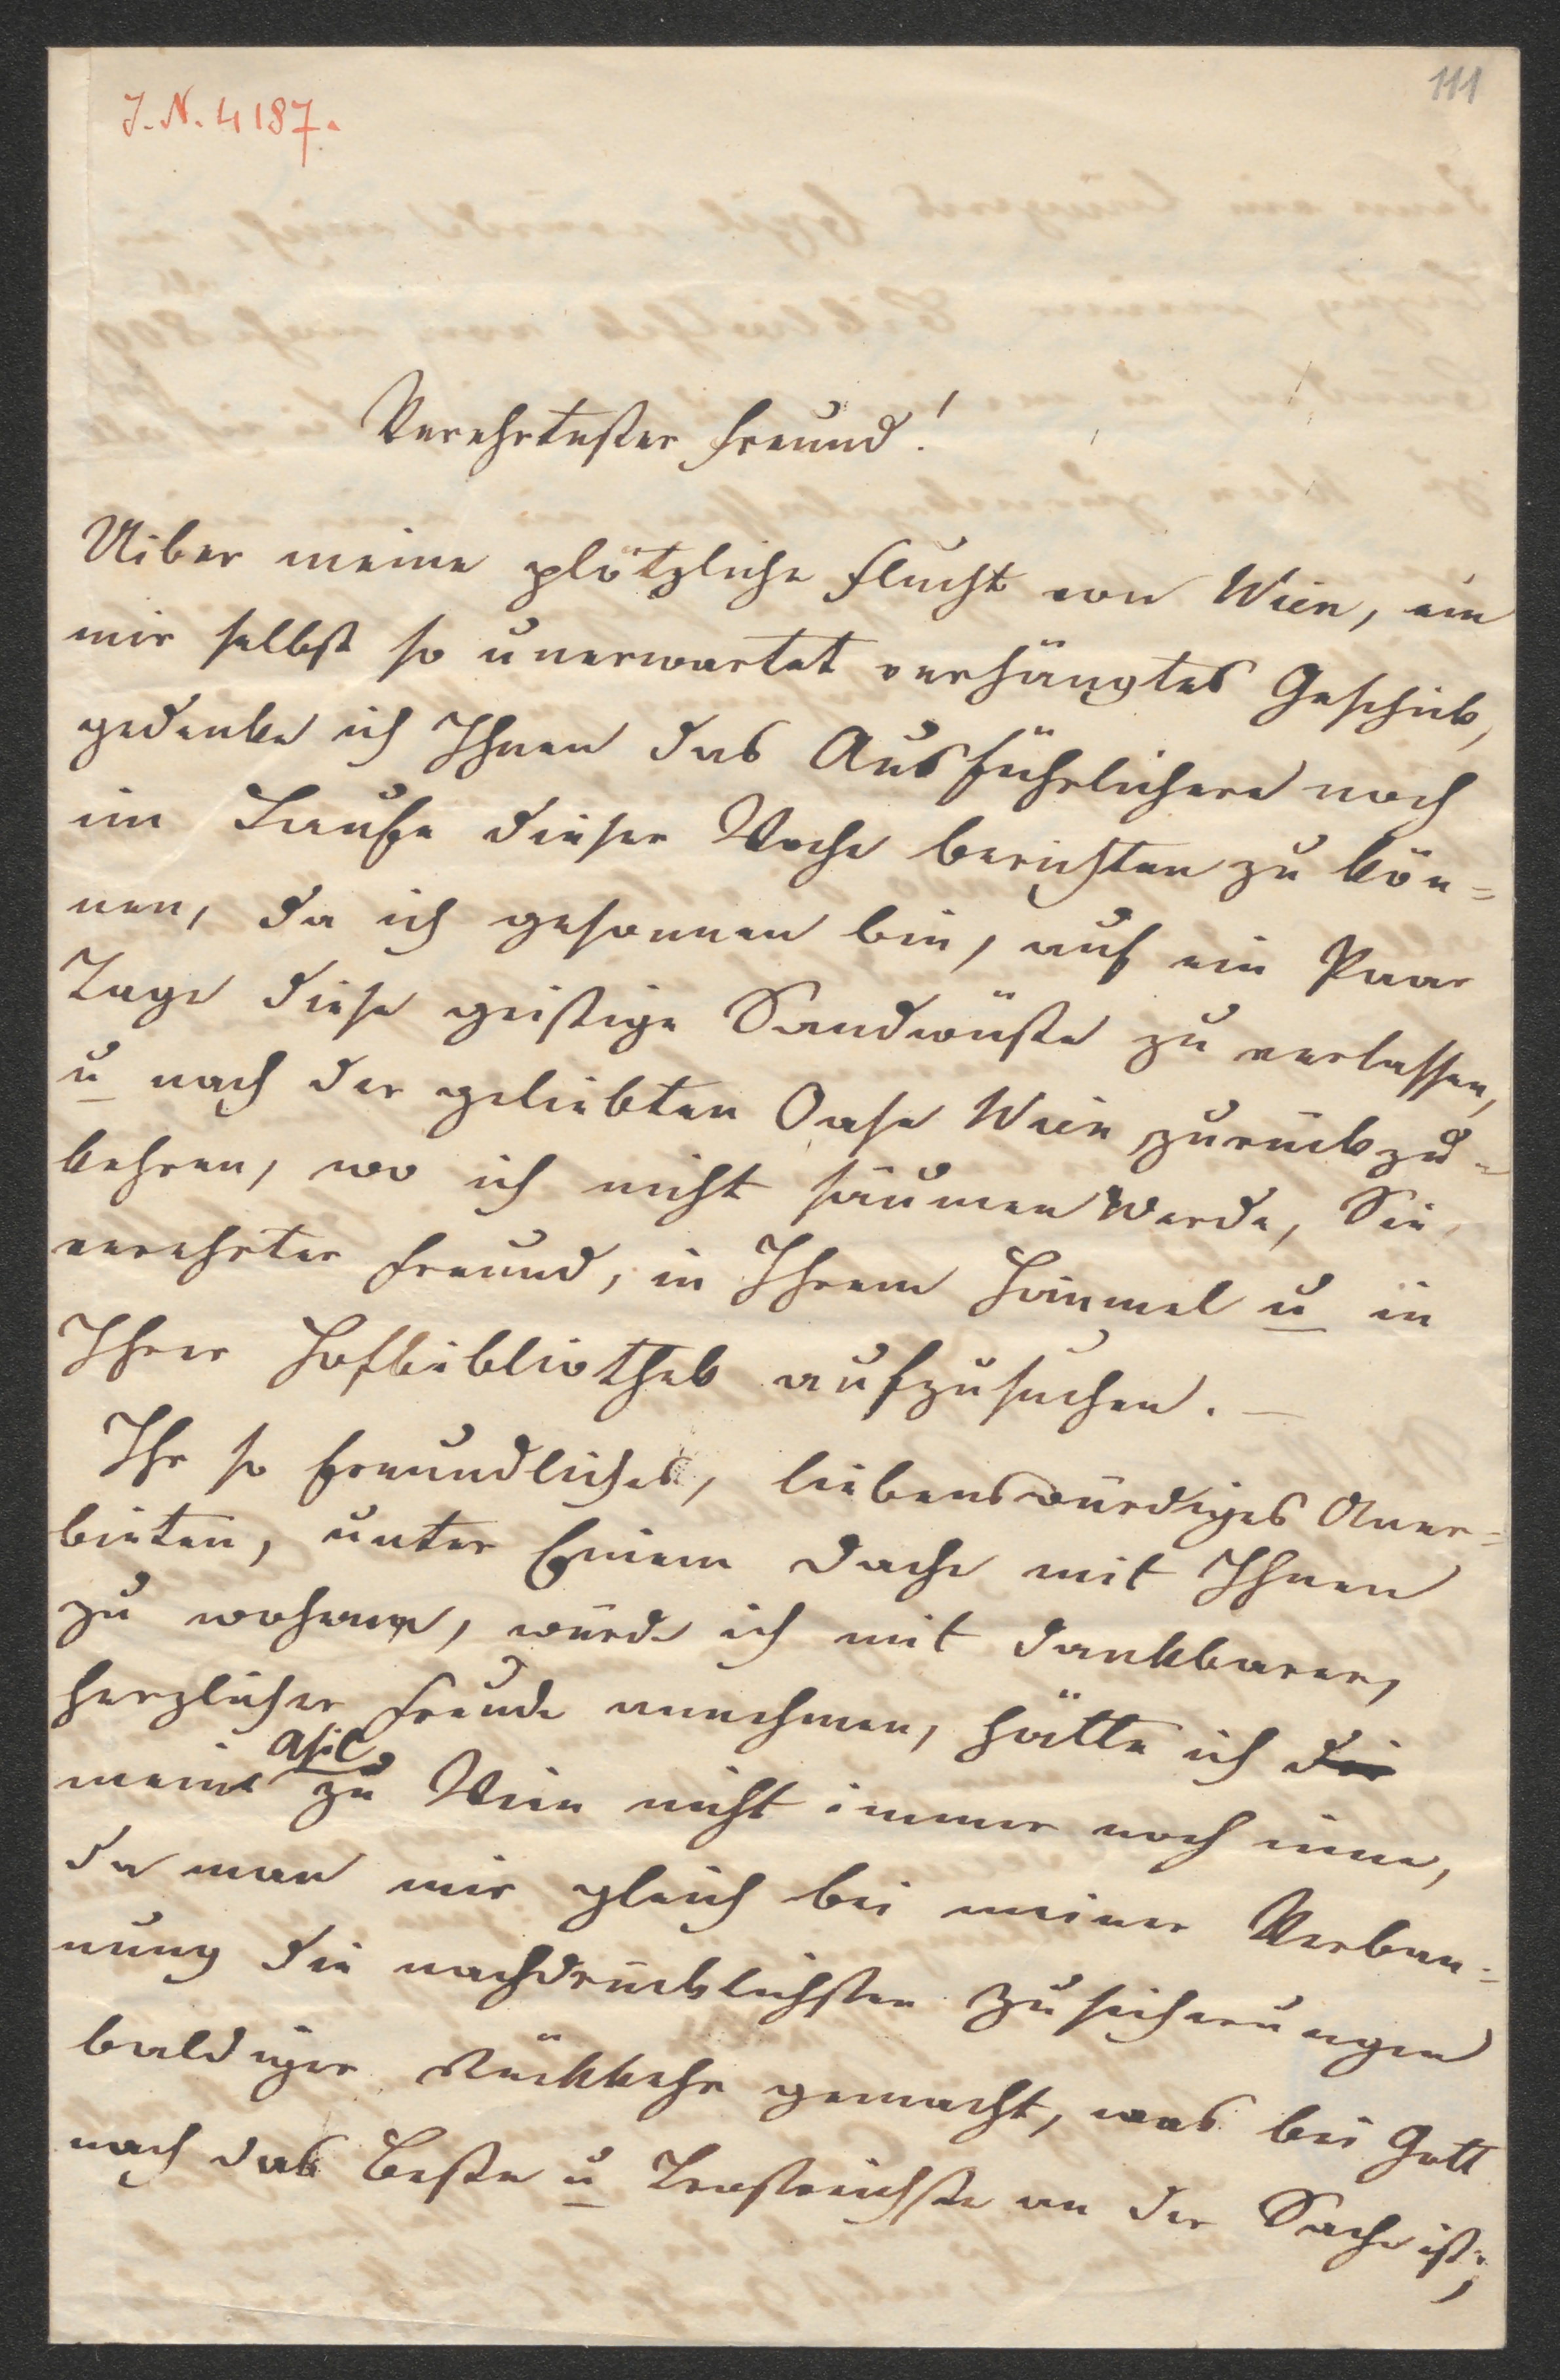 111
J. N. 4187.
Verehrtester Freund!
Uiber meine plötzliche Flucht von Wien, ein
mir selbst so unerwartet verhängtes Geschick,
gedenke ich Ihnen das Ausführlichere noch
im Laufe dieser Woche berichten zu kön=
nen, da ich gesonnen bin, auf ein Paar
Tage diese geistige Sandwüste zu verlassen,
u nach der geliebten Oase Wien zurückzu=
kehren, wo ich nicht säumen werde, Sie,
verehrter Freund, in Ihrem Himmel u in
Ihrer Hofbibliothek aufzusuchen. —
Ihr so freundliches, liebenswürdiges Aner=
bieten, unter Einem Dache mit Ihnen
zu wohnen, würde ich mit dankbarer,
herzlicher Freude annehmen, hätte ich die
mein Asil zu Wien nicht immer noch inne,
da man mir gleich bei meiner Verban=
nung die nachdrücklichsten Zusicherungen
baldiger Rückkehr gemacht, was bei Gott
noch das Beste u Trostreichste an der Sache ist;